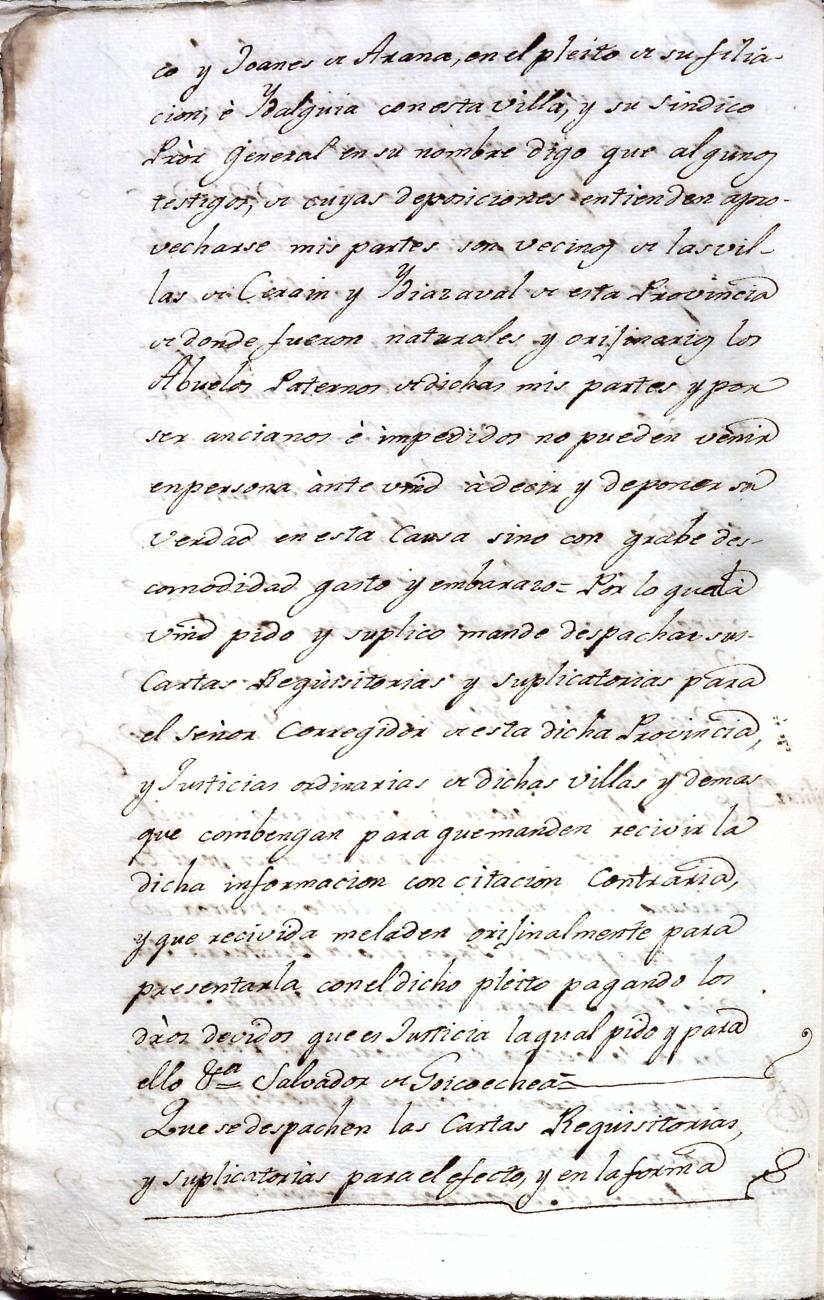 co y Joanes de Arana, en el pleito de su filia-
cion, è Ydalguia con esta villa, y su sindico
Pròr General en su nombre digo que algunos
testigos, de cuyas deposiciones entienden apro-
vecharse mis partes son vecinos de las vil-
las de Cerain y Ydiazaval de esta Provincia
de donde fueron naturales y orijinarios los
Abuelos Paternos de dichas mis partes y por
ser ancianos è impedidos no pueden venir
en persona ànte vmd à decir y deponer su
verdad en esta Causa sino con grabe des-
comodidad gasto y embarazo= Por lo qual à
vmd pido y suplico mande despachar sus
Cartas Requisitorias y suplicatorias para
el señor Corregidor de esta dicha Provincia,
y Justicias ordinarias de dichas villas y demas
que combengan para que manden recivir la
dicha informacion con citacion Contraria,
y que recivida me la den orijinalmente para
presentarla con el dicho pleito pagando los
dròs devidos que es Justicia la qual pido y para
ello &a Salvador de Goicoechea=
Que se despachen las Cartas Requisitorias,
y suplicatorias para el efecto, y en la forma